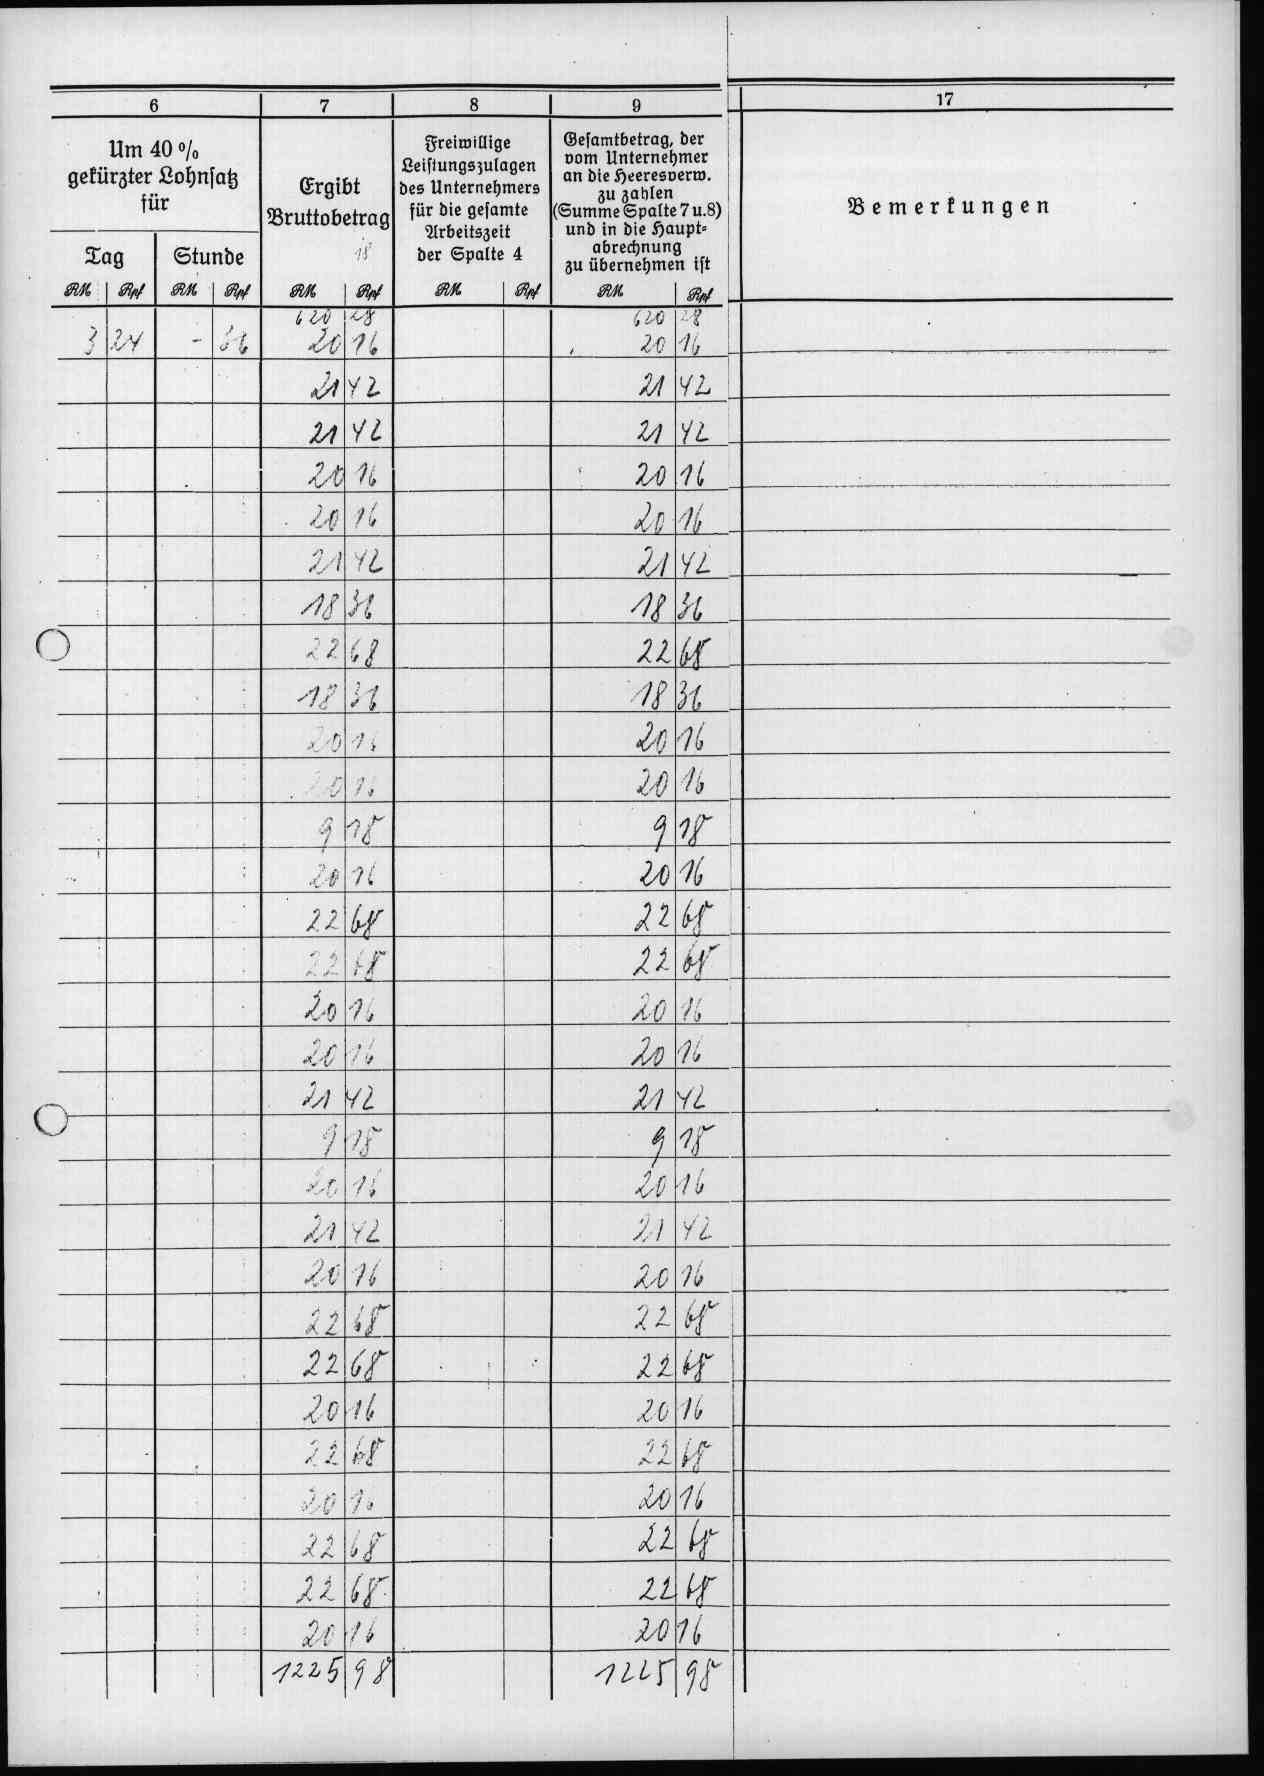 6 7 8 9 17
Um 40 %
gekürzter Lohnsatz
für
Tag Stunde
RM Rpf RM Rpf
Ergibt
Bruttobetrag
18
RM Rpf
Freiwillige
Leistungszulagen
des Unternehmers
für die gesamte
Arbeitszeit
der Spalte 4
RM Rpf
Gesamtbetrag, der
vom Unternehmer
an die Heeresverw.
zu zahlen
(Summe Spalte 7 u. 8)
und in die Haupt-
abrechnung
zu übernehmen ist
RM Rpf
Bemerkungen
620 28 620 28
3 24 - 36 20 16 20 16
21 42 21 42
21 42 21 42
20 16 20 16
20 16 20 16
21 42 21 42
18 36 18 36
22 68 22 68
18 36 18 36
20 16 20 16
20 16 20 16
9 18 9 18
20 16 20 16
22 68 22 68
22 68 22 68
20 16 20 16
20 16 20 16
21 42 21 42
9 18 9 18
20 16 20 16
21 42 21 42
20 16 20 16
22 68 22 68
22 68 22 68
20 16 20 16
22 68 22 68
20 16 20 16
22 68 22 68
22 68 22 68
20 16 20 16
1225 98 1225 98